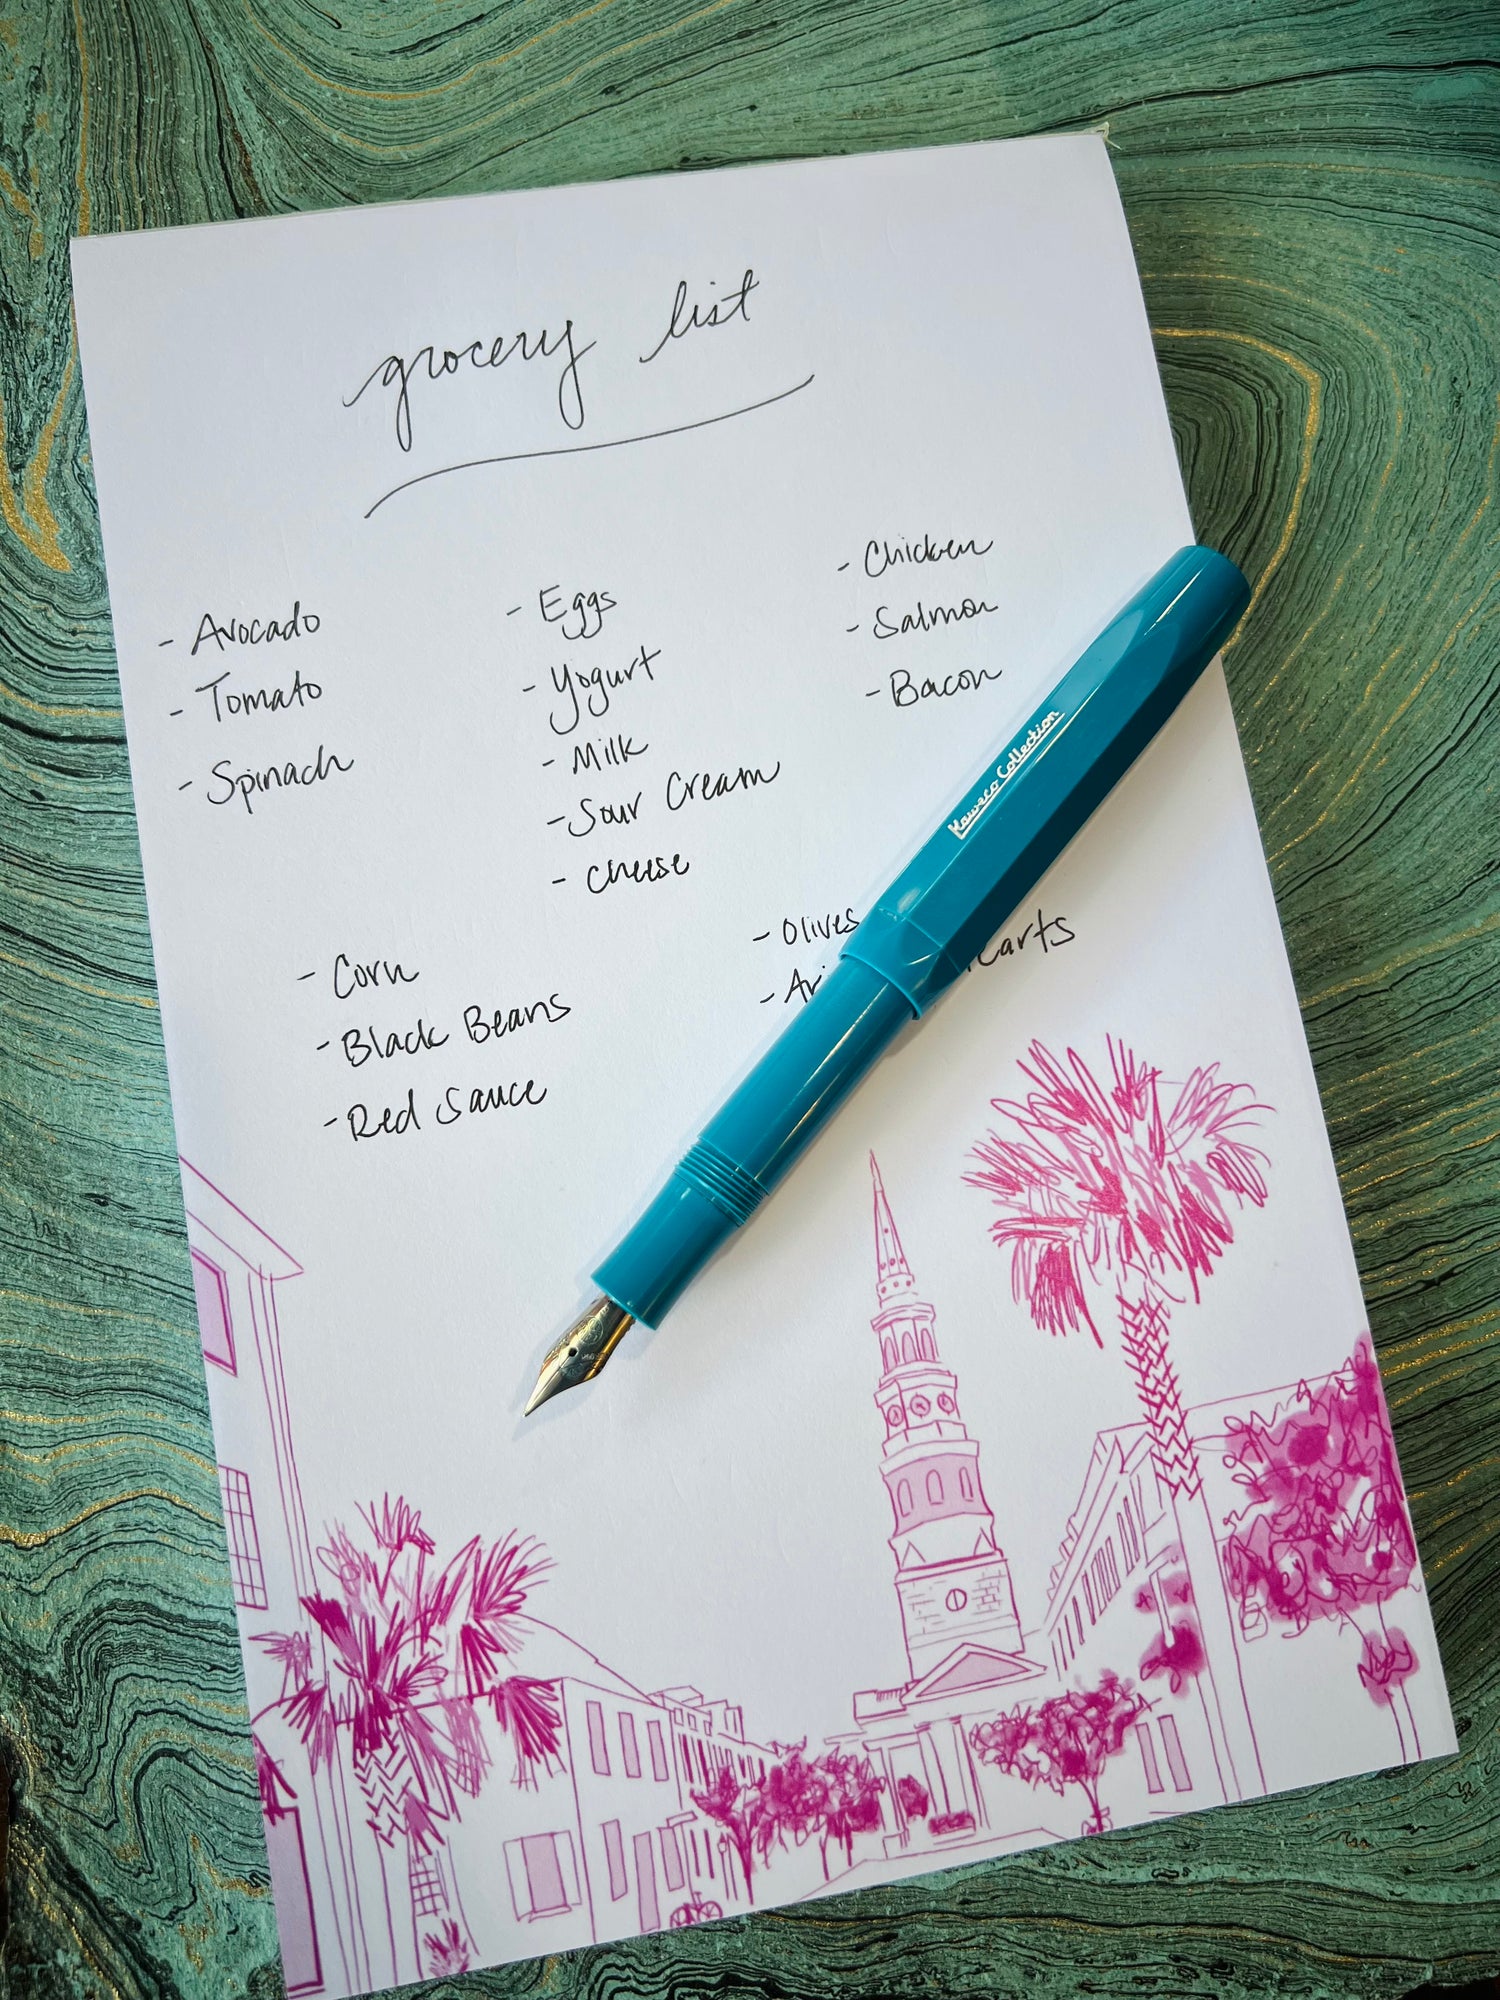 grocery list
- Avocado
- Tomato
- Spinach
- Eggs
- Yogurt
- Milk
- Sour Cream
- Cheese
- Chicken
- Salmon
- Bacon
- Corn
- Black Beans
- Red Sauce
- Olives
Kaweco Collection